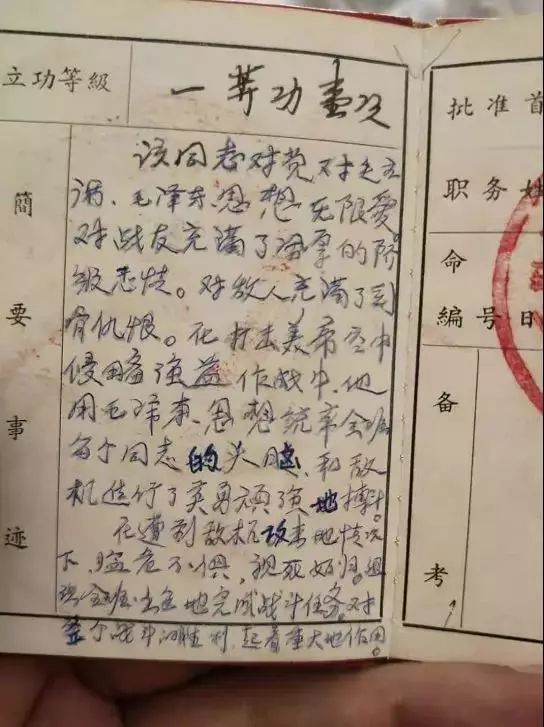 立功等級
一等功壹次
簡要事迹
该同志对党对毛主
席、毛泽东思想无限爱。
对战友充满了深厚的阶
级感情。对敌人充满了刻
骨仇恨。在打击美帝空中
侵略强盗作战中、他
用毛泽东思想统率全班
每个同志的头脑、和敌
机进行了英勇顽强地搏斗。
在遭到敌机攻击地情况
下、临危不惧,视死如归。组
织全班出色地完成战斗任务。对
整个战斗的胜利,起着重大地作用。
批准首
职务姓
命
編号日
备考